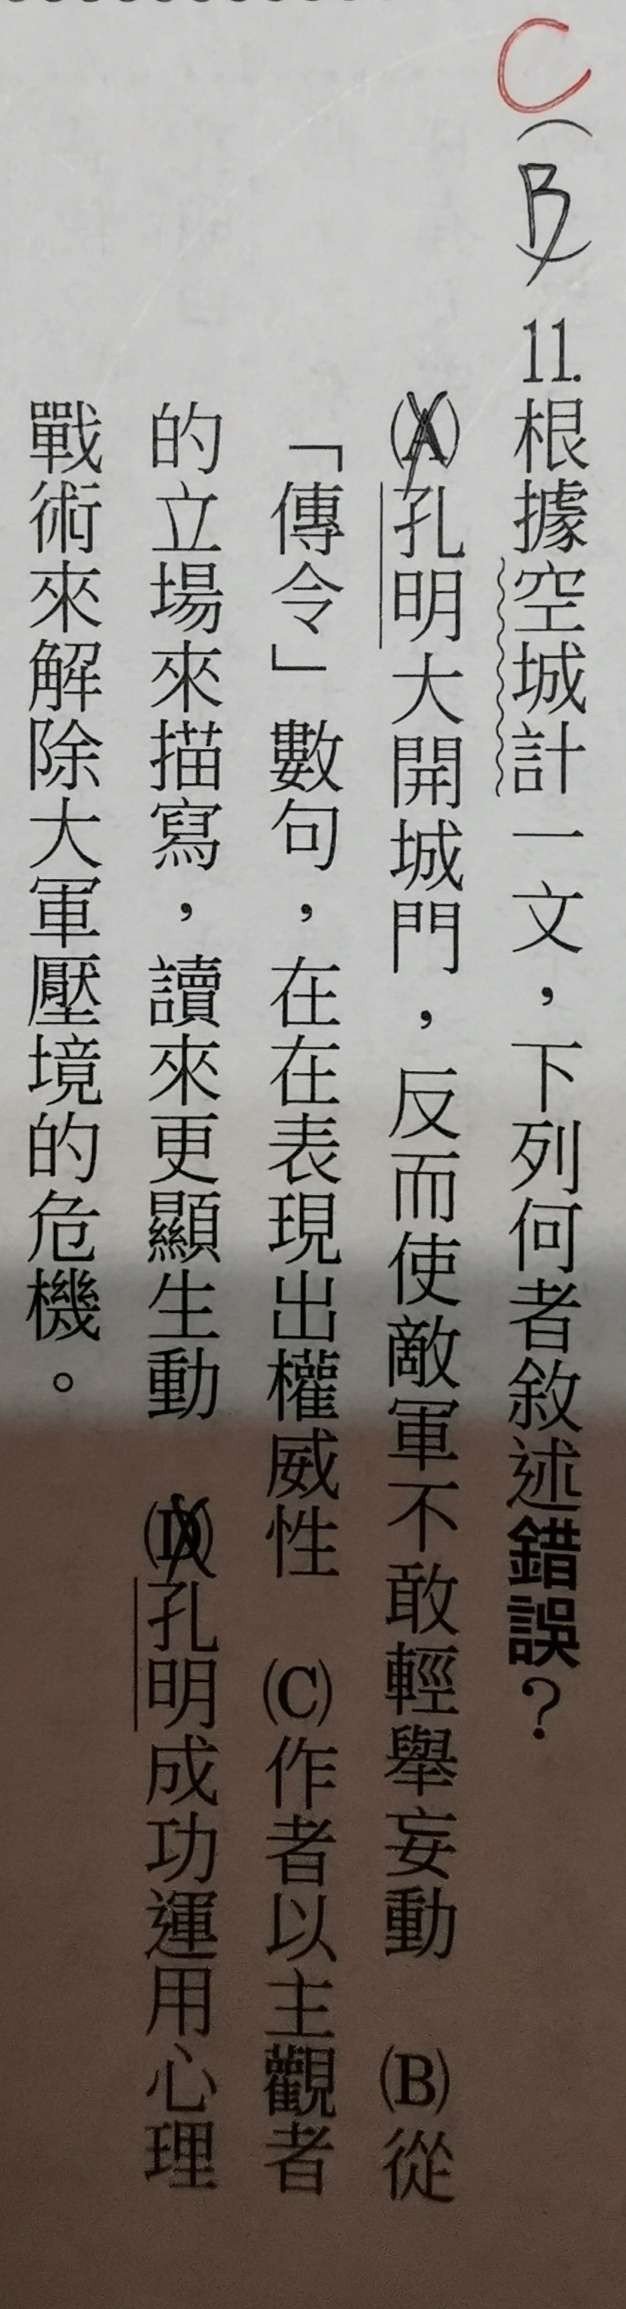 C(B)11.根據空城計一文，下列何者敘述錯誤？
(A)孔明大開城門，反而使敵軍不敢輕舉妄動　(B)從
「傳令」數句，在在表現出權威性　(C)作者以主觀者
的立場來描寫，讀來更顯生動　(D)孔明成功運用心理
戰術來解除大軍壓境的危機。